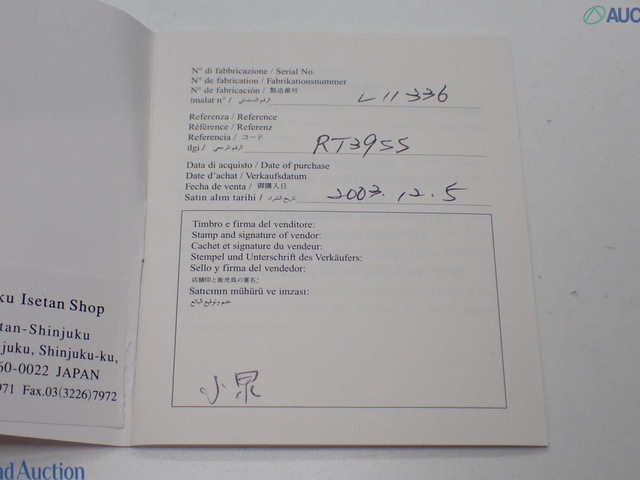 AUC
N° di fabbricazione / Serial No.
N° de fabrication / Fabrikationsnummer
N° de fabricación / 製造番号
imalat n° / الرقم التسلسلي
L11336
Referenza / Reference
Référence / Referenz
Referencia / コード
ilgi / الرقم المرجعي
RT3955
Data di acquisto / Date of purchase
Date d'achat / Verkaufsdatum
Fecha de venta / 御購入日
Satın alım tarihi / تاريخ الشراء
2003.12.5
Timbro e firma del venditore:
Stamp and signature of vendor:
Cachet et signature du vendeur:
Stempel und Unterschrift des Verkäufers:
Sello y firma del vendedor:
店舗印と販売員の署名:
Satıcının mühürü ve imzası:
ختم وتوقيع البائع
小泉
ku Isetan Shop
tan-Shinjuku
juku, Shinjuku-ku,
60-0022 JAPAN
971 Fax.03(3226)7972
nd Auction